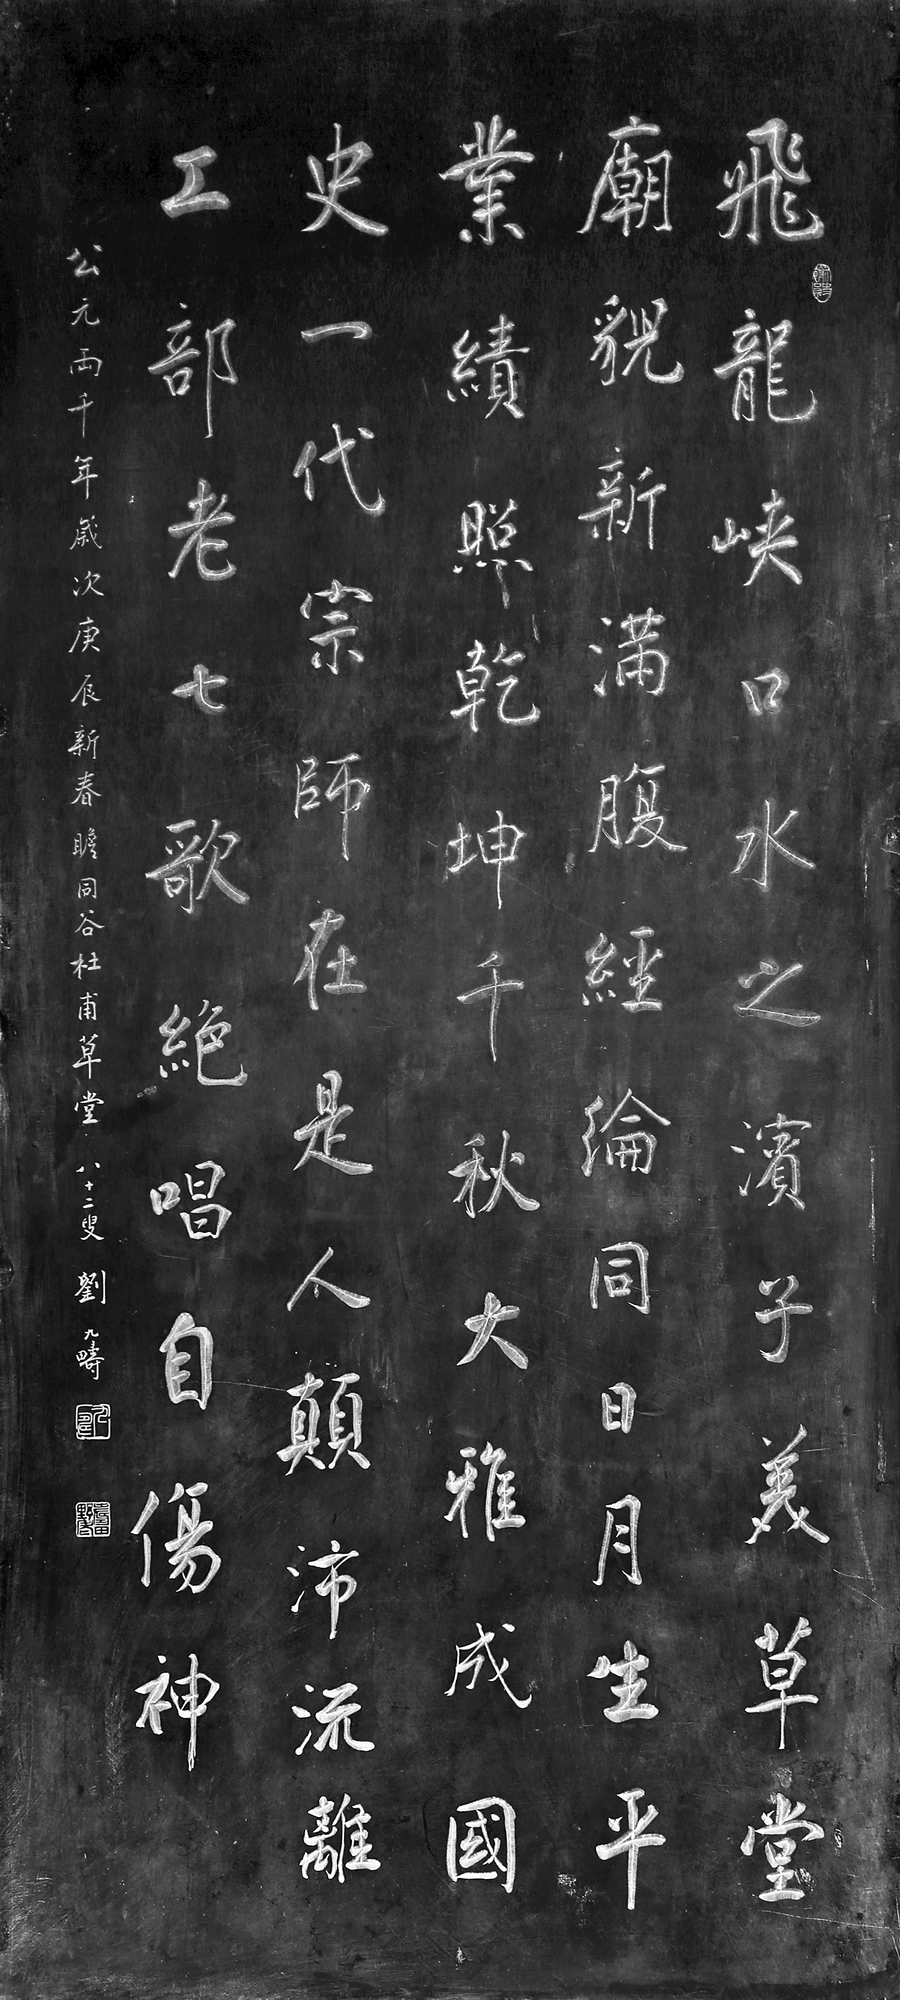 飛龍峽口水之濱子美草堂
廟貌新滿腹經綸同日月生平
業績照乾坤千秋大雅成國
史一代宗師在是人顛沛流離
工部老七歌絕唱自傷神
公元兩千年歲次庚辰新春瞻同谷杜甫草堂 八十二叟 劉九疇